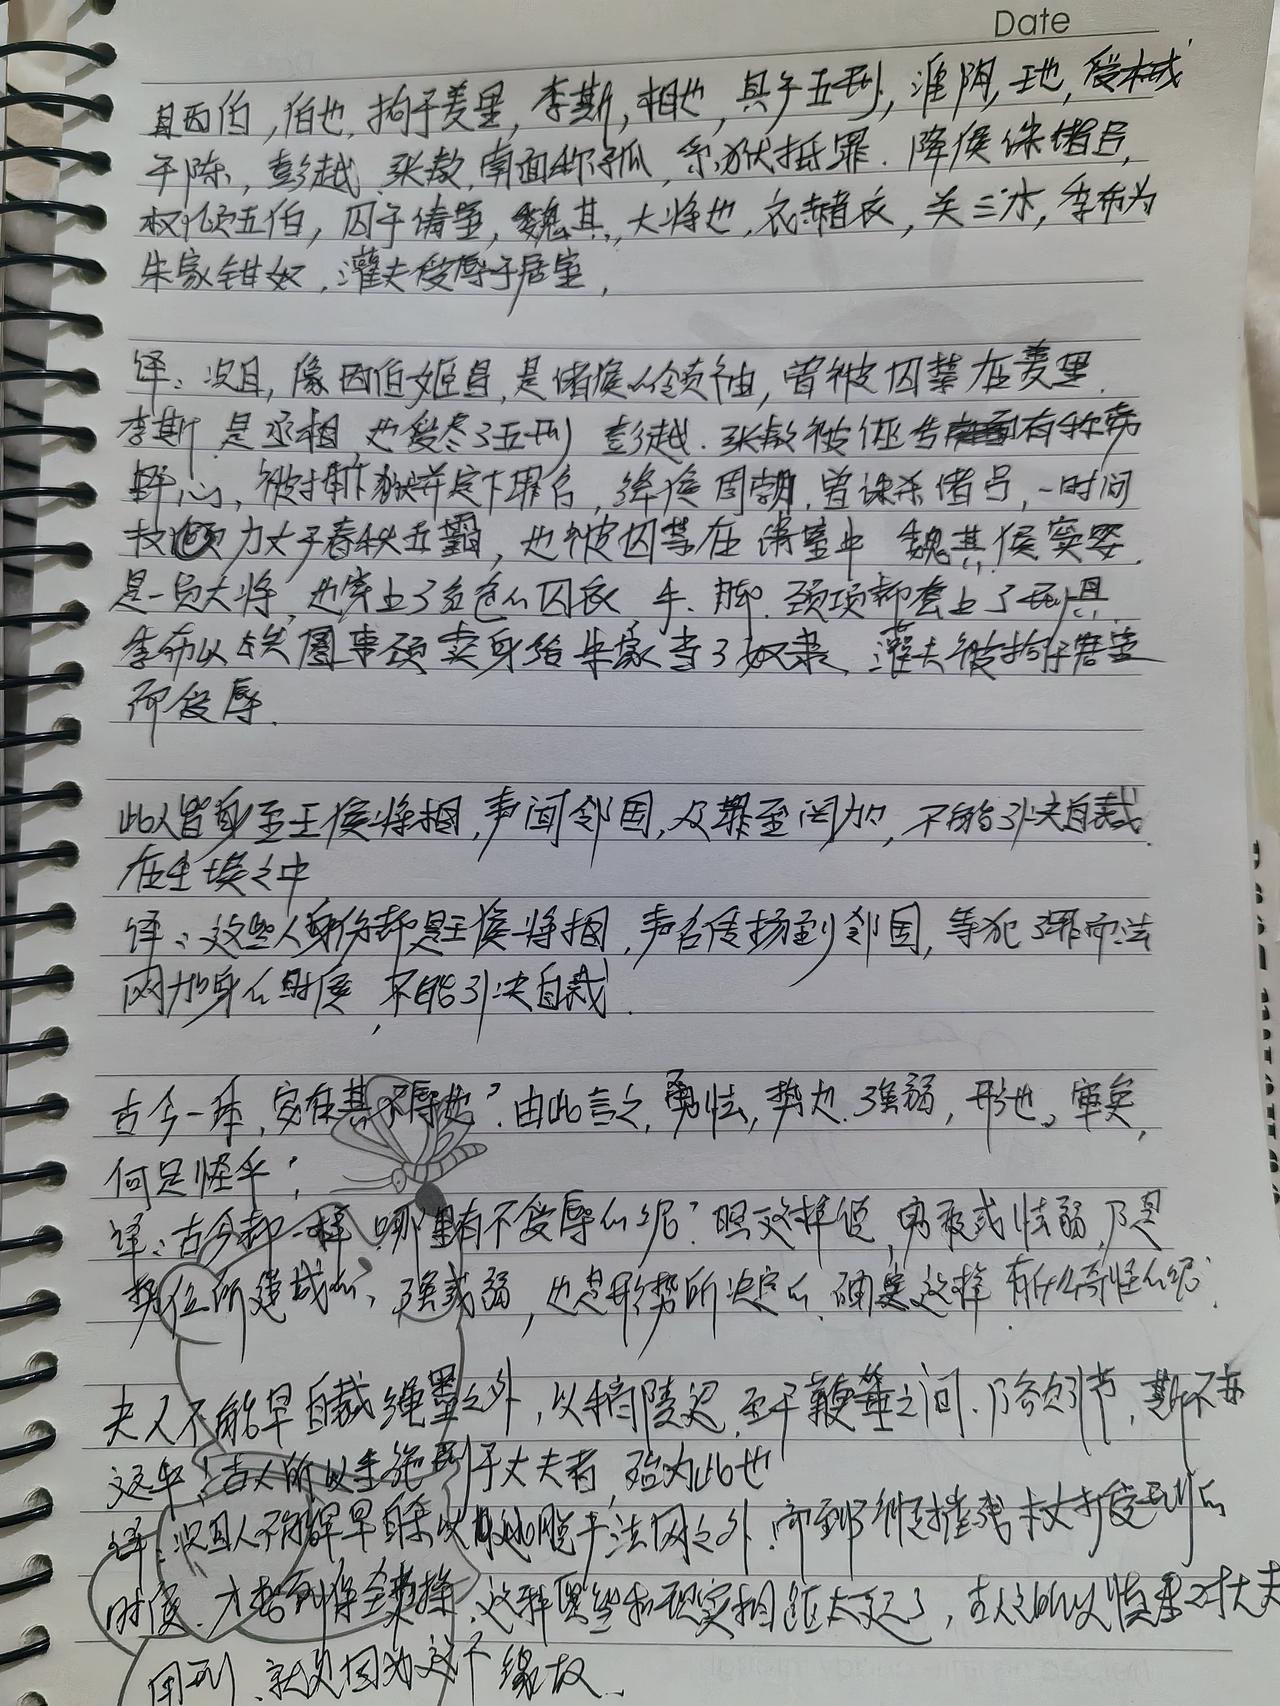 Date
且西伯，伯也，拘于羑里，李斯，相也，具于五刑，淮阴，王也，受械
于陈，彭越、张敖，南面称孤，系狱抵罪．绛侯诛诸吕，
权倾五伯，囚于请室，魏其，大将也，衣赭衣，关三木，季布为
朱家钳奴，灌夫受辱于居室，
译：况且，像西伯姬昌，是诸侯的领袖，曾被囚禁在羑里．
李斯是丞相 也受尽了五刑 彭越．张敖被诬告有称孤
野心，被捕下狱并定下罪名，绛侯周勃，曾诛杀诸吕，一时间
权力大于春秋五霸，也被囚禁在请室中 魏其侯窦婴．
是一员大将，也穿上了红色的囚衣 手、脚．颈项都套上了刑具
季布以铁圈束颈卖身给朱家当了奴隶．灌夫被拘于居室
而受辱．
此人皆身至王侯将相，声闻邻国，及罪至罔加，不能引决自裁．
在尘埃之中
译：这些人身份都是王侯将相，声名传扬到邻国，等犯了罪而法
网加身的时候，不能引决自裁．
古今一体，安在其不辱也？由此言之，勇怯，势也．强弱，形也。审矣，
何足怪乎！
译：古今都一样，哪里有不受辱的呢？照这样说，勇敢或怯弱，乃是
势位所造成的，强或弱，也是形势所决定的．确实这样 有什么奇怪的呢？
夫人不能早自裁绳墨之外，以稍陵迟，至于鞭箠之间．乃欲引节，斯不亦
远乎！古人所以重施刑于大夫者，殆为此也
译：况且人不能早自杀以脱于法网之外．而到了被摧残 杖打受刑的
时候．才想到保全节操，这种愿望和现实相距太远了，古人之所以慎重对大夫
用刑、就是因为这个缘故．